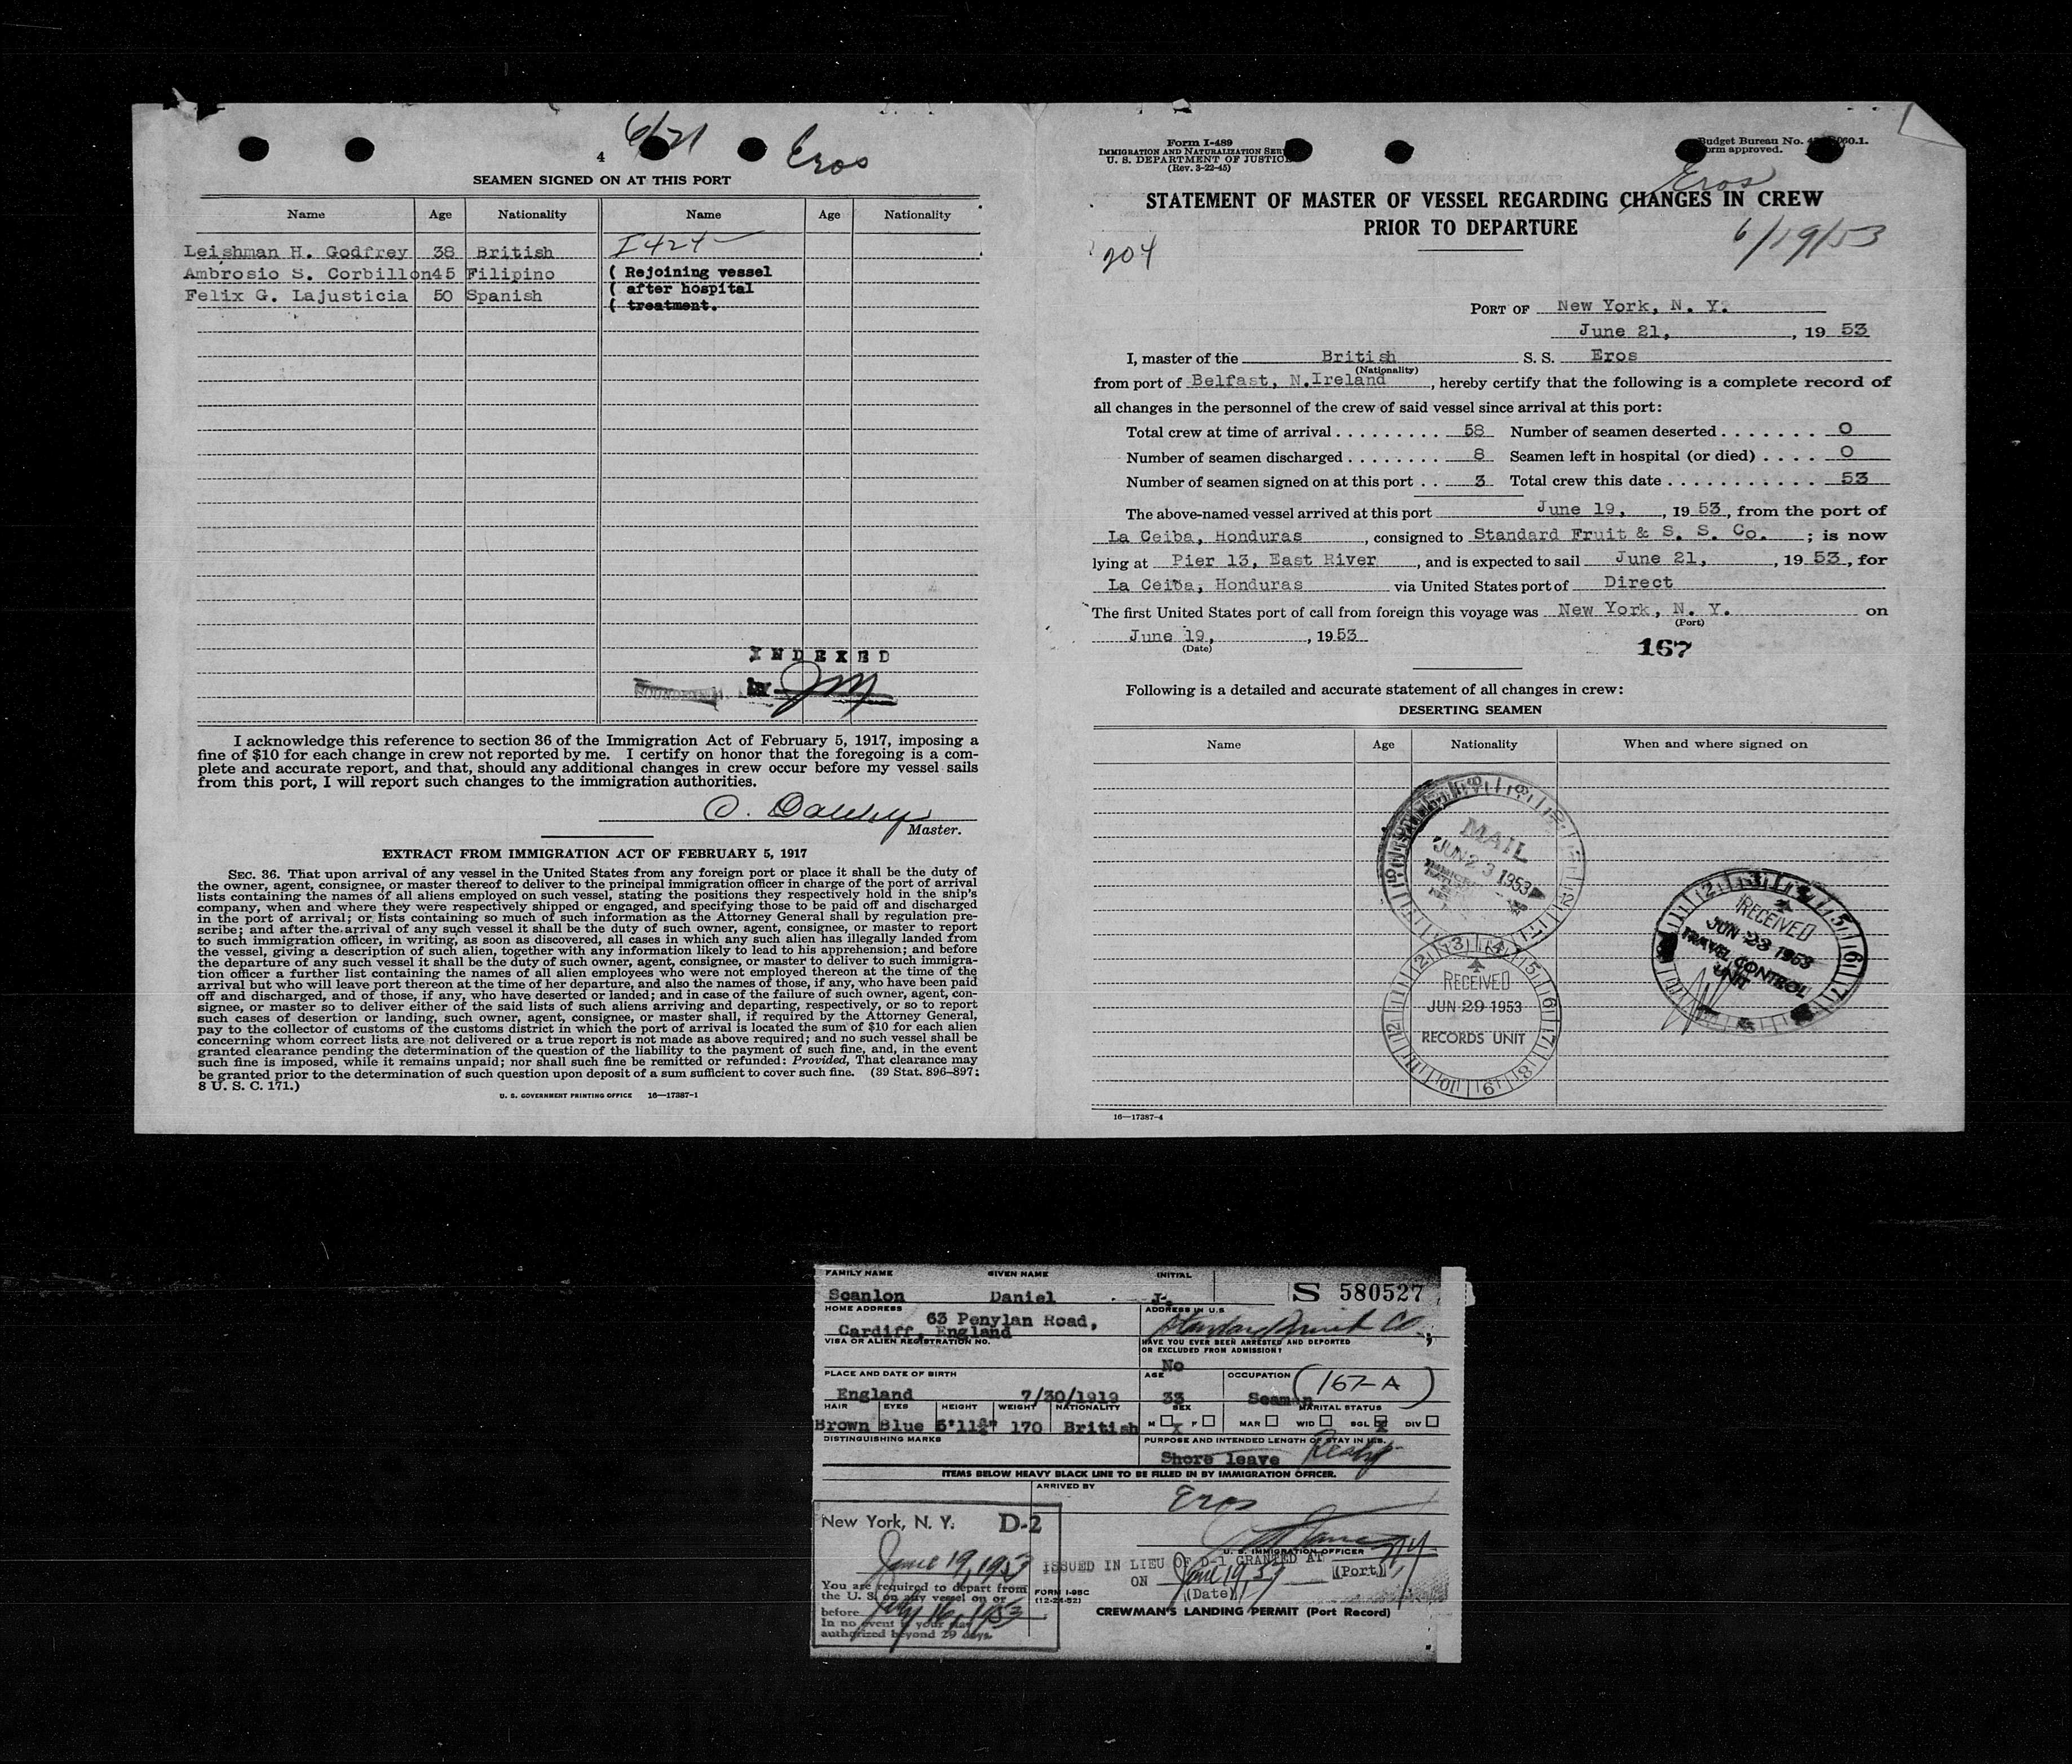 6/21 Eros
4
SEAMEN SIGNED ON AT THIS PORT
Name Age Nationality Name Age Nationality
Leishman H. Godfrey 38 British I 424
Ambrosio S. Corbillon 45 Filipino ( Rejoining vessel
( after hospital
Felix G. Lajusticia 50 Spanish ( treatment.
INDEXED
by JM
I acknowledge this reference to section 36 of the Immigration Act of February 5, 1917, imposing a
fine of $10 for each change in crew not reported by me. I certify on honor that the foregoing is a com-
plete and accurate report, and that, should any additional changes in crew occur before my vessel sails
from this port, I will report such changes to the immigration authorities.
Master.
EXTRACT FROM IMMIGRATION ACT OF FEBRUARY 5, 1917
SEC. 36. That upon arrival of any vessel in the United States from any foreign port or place it shall be the duty of
the owner, agent, consignee, or master thereof to deliver to the principal immigration officer in charge of the port of arrival
lists containing the names of all aliens employed on such vessel, stating the positions they respectively hold in the ship's
company, when and where they were respectively shipped or engaged, and specifying those to be paid off and discharged
in the port of arrival; or lists containing so much of such information as the Attorney General shall by regulation pre-
scribe; and after the arrival of any such vessel it shall be the duty of such owner, agent, consignee, or master to report
to such immigration officer, in writing, as soon as discovered, all cases in which any such alien has illegally landed from
the vessel, giving a description of such alien, together with any information likely to lead to his apprehension; and before
the departure of any such vessel it shall be the duty of such owner, agent, consignee, or master to deliver to such immigra-
tion officer a further list containing the names of all alien employees who were not employed thereon at the time of the
arrival but who will leave port thereon at the time of her departure, and also the names of those, if any, who have been paid
off and discharged, and of those, if any, who have deserted or landed; and in case of the failure of such owner, agent, con-
signee, or master so to deliver either of the said lists of such aliens arriving and departing, respectively, or so to report
such cases of desertion or landing, such owner, agent, consignee, or master shall, if required by the Attorney General,
pay to the collector of customs of the customs district in which the port of arrival is located the sum of $10 for each alien
concerning whom correct lists are not delivered or a true report is not made as above required; and no such vessel shall be
granted clearance pending the determination of the question of the liability to the payment of such fine, and, in the event
such fine is imposed, while it remains unpaid; nor shall such fine be remitted or refunded: Provided, That clearance may
be granted prior to the determination of such question upon deposit of a sum sufficient to cover such fine. (39 Stat. 896-897;
8 U. S. C. 171.)
U. S. GOVERNMENT PRINTING OFFICE 16—17387-1
Form I-489
IMMIGRATION AND NATURALIZATION
U. S. DEPARTMENT OF JUSTICE
(Rev. 3-22-45)
Budget Bureau No.
Form approved.
Eros
STATEMENT OF MASTER OF VESSEL REGARDING CHANGES IN CREW
PRIOR TO DEPARTURE
6/19/53
204
PORT OF New York, N. Y.
June 21, , 19 53
I, master of the British S. S. Eros
(Nationality)
from port of Belfast, N.Ireland , hereby certify that the following is a complete record of
all changes in the personnel of the crew of said vessel since arrival at this port:
Total crew at time of arrival . . . . . . . . . 58 Number of seamen deserted . . . . . . . 0
Number of seamen discharged . . . . . . . . 8 Seamen left in hospital (or died) . . . . 0
Number of seamen signed on at this port . . 3 Total crew this date . . . . . . . . . . . 53
The above-named vessel arrived at this port June 19, , 19 53, from the port of
La Ceiba, Honduras , consigned to Standard Fruit & S. S. Co. ; is now
lying at Pier 13, East River , and is expected to sail June 21, , 19 53, for
La Ceiba, Honduras via United States port of Direct
The first United States port of call from foreign this voyage was New York, N. Y. on
(Port)
June 19, , 19 53
(Date)
167
Following is a detailed and accurate statement of all changes in crew:
DESERTING SEAMEN
Name Age Nationality When and where signed on
MAIL
JUN 23 1953
RECEIVED
JUN 23 1953
TRAVEL CONTROL
UNIT
RECEIVED
JUN 29 1953
RECORDS UNIT
16—17387-4
FAMILY NAME GIVEN NAME INITIAL
Scanlon Daniel J. S 580527
HOME ADDRESS ADDRESS IN U.S.
63 Penylan Road, Standard Fruit Co.,
Cardiff, England
VISA OR ALIEN REGISTRATION NO. HAVE YOU EVER BEEN ARRESTED AND DEPORTED
OR EXCLUDED FROM ADMISSION?
No
PLACE AND DATE OF BIRTH AGE OCCUPATION (167-A)
England 7/30/1919 33 Seaman
HAIR EYES HEIGHT WEIGHT NATIONALITY SEX MARITAL STATUS
Brown Blue 5'11¾" 170 British M X F MAR WID SGL X DIV
DISTINGUISHING MARKS PURPOSE AND INTENDED LENGTH OF STAY IN U.S.
Shore leave Reship
ITEMS BELOW HEAVY BLACK LINE TO BE FILLED IN BY IMMIGRATION OFFICER.
ARRIVED BY
Eros
New York, N. Y. D-2
June 19, 1953
U. S. IMMIGRATION OFFICER
ISSUED IN LIEU OF D-1 GRANTED AT NY
(Port)
ON June 19, 53
(Date)
You are required to depart from
the U. S. on any vessel on or
before July 16, 1953
In no event is your stay
authorized beyond 29 days.
FORM I-95C
(12-24-52)
CREWMAN'S LANDING PERMIT (Port Record)